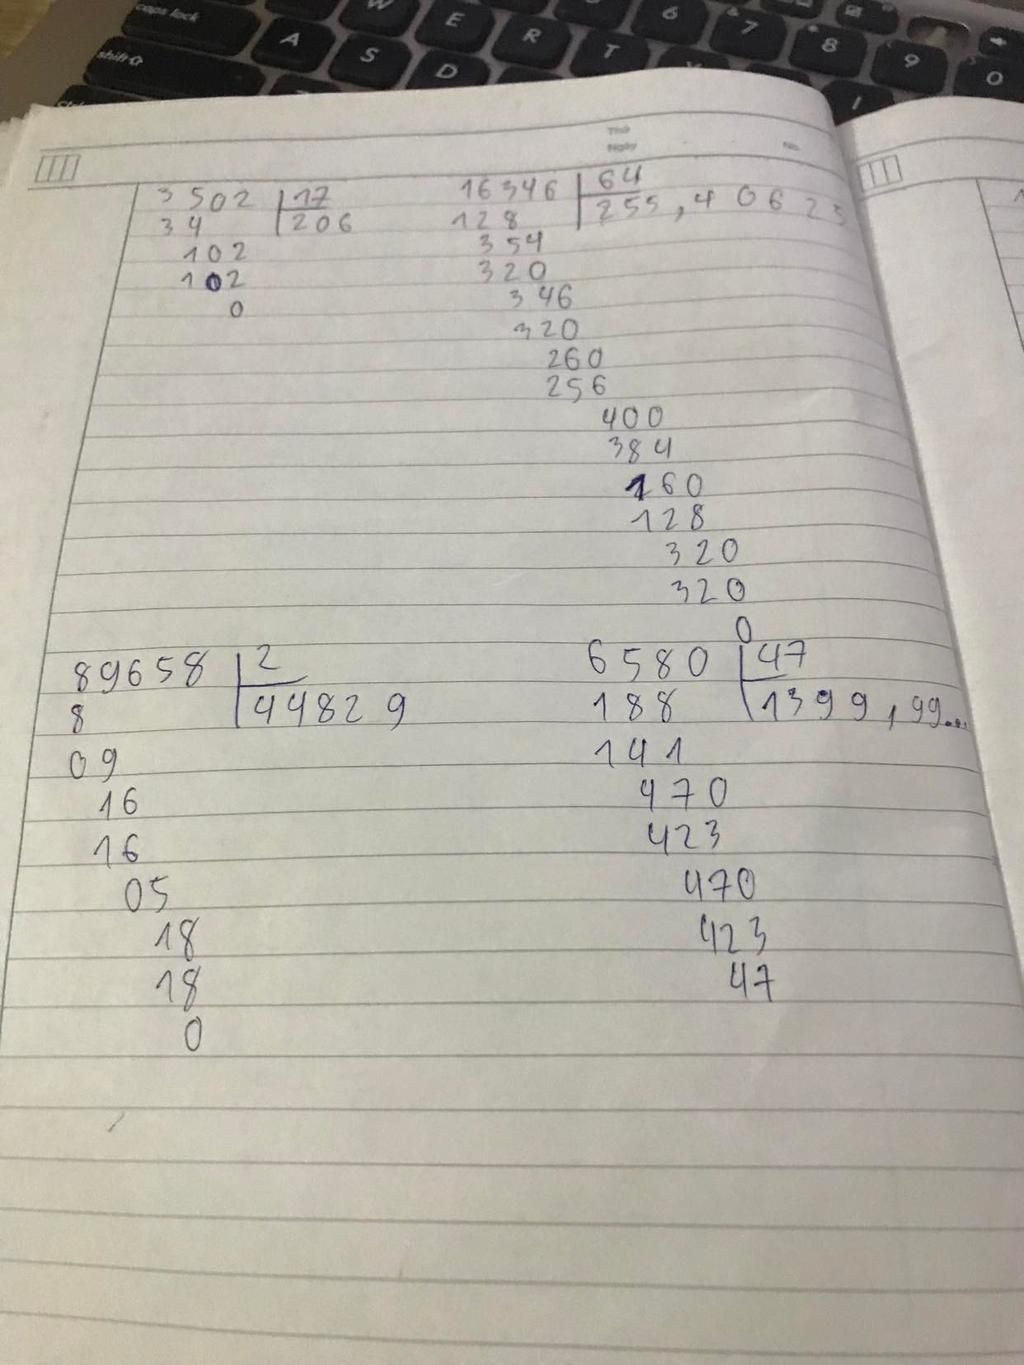 caps lock
W
E
R
T
6
7
8
9
0
A
S
D
shift
Thứ
Ngày
No.
3502 17
34 206
102
102
0
16346 64
128 255,40625
354
320
346
320
260
256
400
384
160
128
320
320
0
89658 2
8 44829
09
16
16
05
18
18
0
6580 47
188 1399,99...
141
470
423
470
423
47